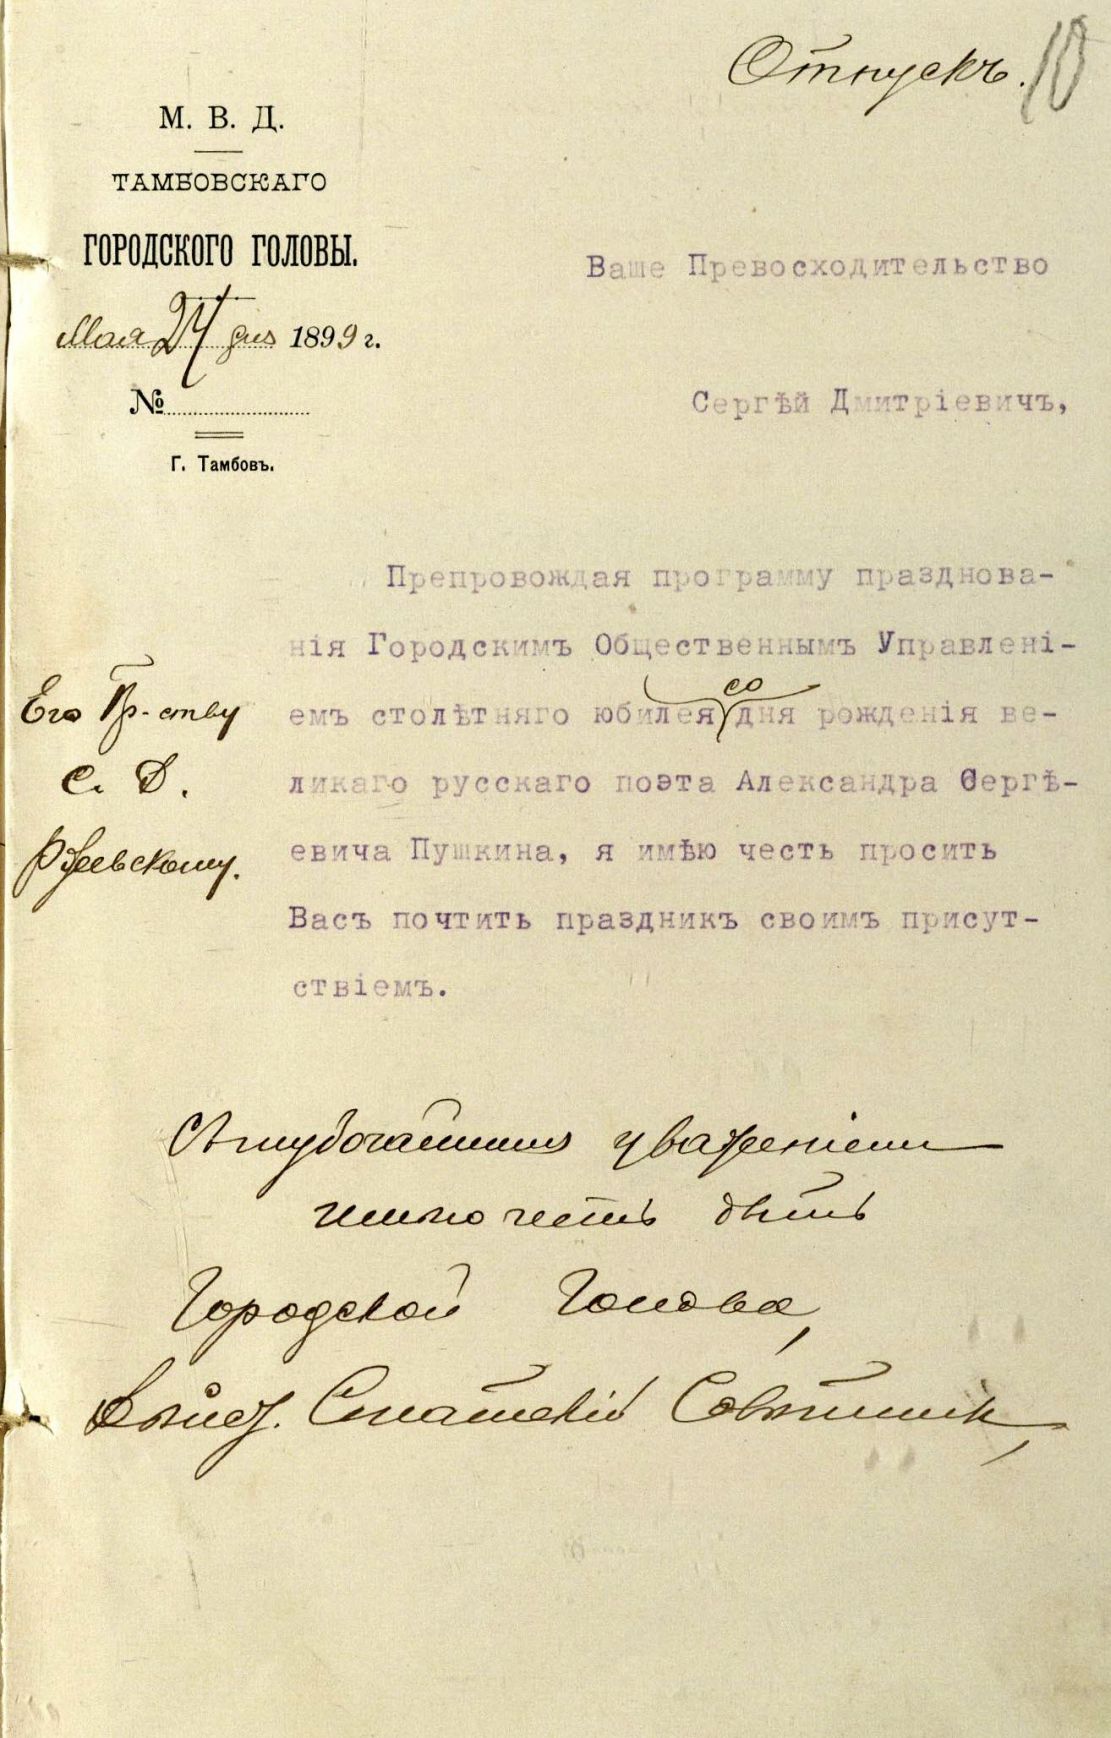 Отпускъ. 10
М. В. Д.
ТАМБОВСКАГО
ГОРОДСКОГО ГОЛОВЫ.
Мая 24 дня 1899 г.
№
Г. Тамбовъ.
Ваше Превосходительство
Сергѣй Дмитріевичъ,
Препровождая программу празднова-
нія Городскимъ Общественнымъ Управлені-
со
емъ столѣтняго юбилея дня рожденія ве-
ликаго русскаго поэта Александра Сергѣ-
евича Пушкина, я имѣю честь просить
Васъ почтить праздникъ своимъ присут-
ствіемъ.
Его Пр-ству
С. Д.
Ржевскому.
Съ глубочайшимъ уваженіемъ
имѣю честь быть
Городской Голова,
Статскій Совѣтникъ,